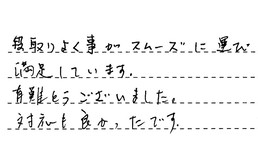 段取りよく事がスムーズに運び
満足しています.
有難とうございました。
対応も良かったです.